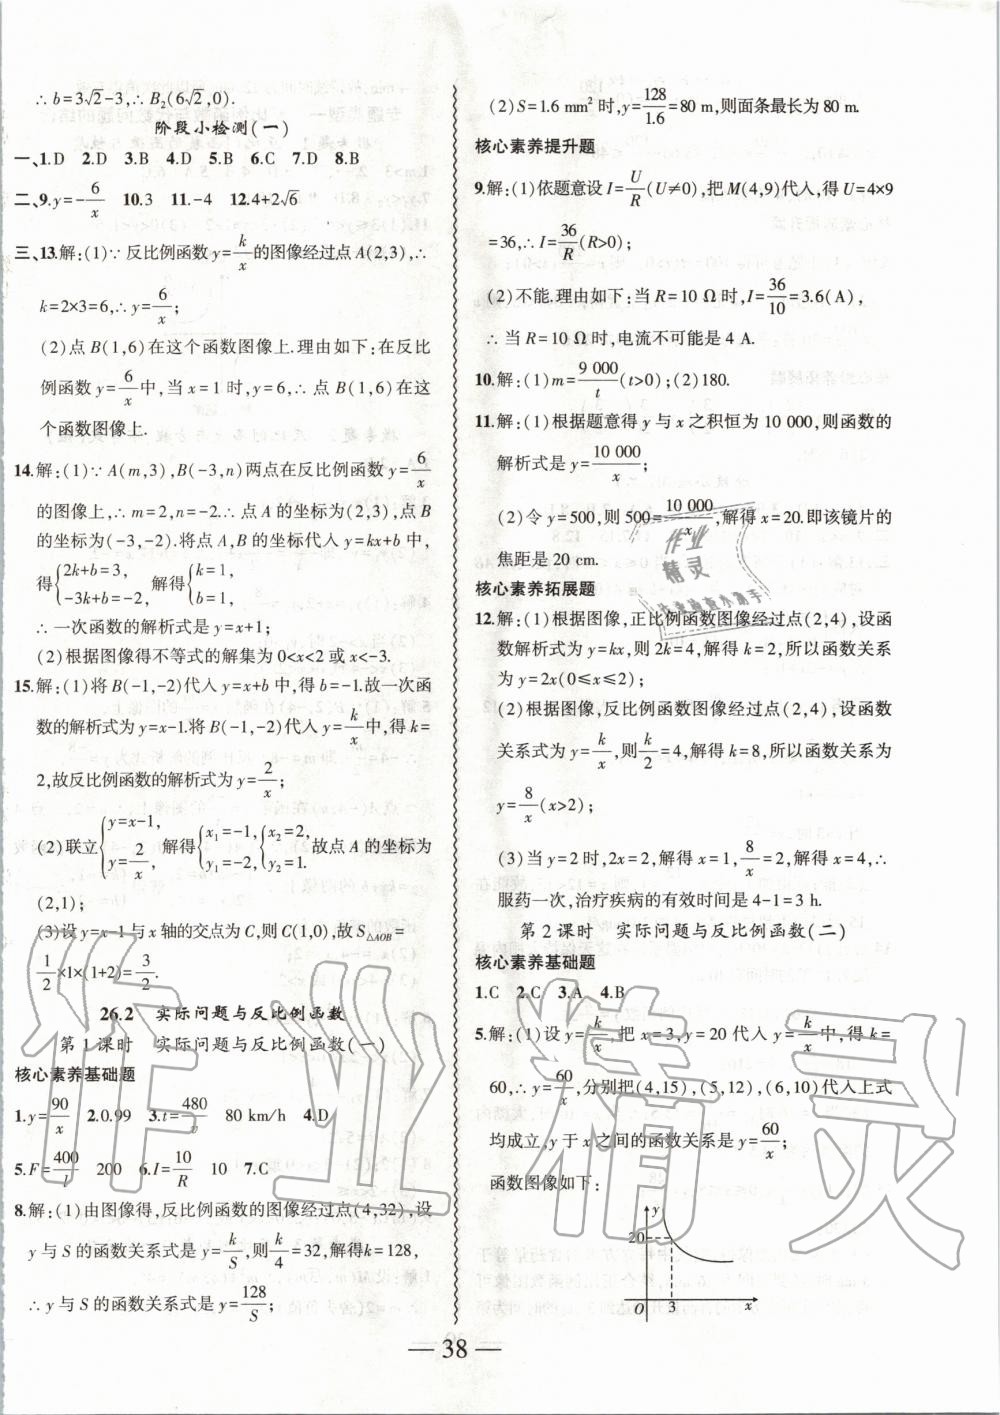 ∴b=3√2-3,∴B₂(6√2,0).
阶段小检测(一)
一、1.D 2.D 3.B 4.D 5.B 6.C 7.D 8.B
二、9.y=-6/x 10.3 11.-4 12.4+2√6
三、13.解:(1)∵反比例函数y=k/x的图像经过点A(2,3),∴
k=2×3=6,∴y=6/x;
(2)点B(1,6)在这个函数图像上.理由如下:在反比
例函数y=6/x中,当x=1时,y=6,∴点B(1,6)在这
个函数图像上.
14.解:(1)∵A(m,3),B(-3,n)两点在反比例函数y=6/x
的图像上,∴m=2,n=-2.∴点A的坐标为(2,3),点B
的坐标为(-3,-2).将点A,B的坐标代入y=kx+b中,
得{2k+b=3, -3k+b=-2 解得{k=1, b=1.
∴一次函数的解析式是y=x+1;
(2)根据图像得不等式的解集为0<x<2或x<-3.
15.解:(1)将B(-1,-2)代入y=x+b中,得b=-1.故一次函
数的解析式为y=x-1.将B(-1,-2)代入y=k/x中,得k=
2,故反比例函数的解析式为y=2/x;
(2)联立{y=x-1, y=2/x, 解得{x₁=-1, y₁=-2, {x₂=2, y₂=1. 故点A的坐标为
(2,1);
(3)设y=x-1与x轴的交点为C,则C(1,0),故S△AOB=
1/2×1×(1+2)=3/2.
26.2 实际问题与反比例函数
第1课时 实际问题与反比例函数(一)
核心素养基础题
1.y=90/x 2.0.99 3.t=480/v 80 km/h 4.D
5.F=400/l 200 6.I=10/R 10 7.C
8.解:(1)由图像得,反比例函数的图像经过点(4,32),设
y与S的函数关系式是y=k/S,则k/4=32,解得k=128,
∴y与S的函数关系式是y=128/S;
(2)S=1.6 mm²时,y=128/1.6=80 m,则面条最长为80 m.
核心素养提升题
9.解:(1)依题意设I=U/R(U≠0),把M(4,9)代入,得U=4×9
=36,∴I=36/R(R>0);
(2)不能.理由如下:当R=10 Ω时,I=36/10=3.6(A),
∴当R=10 Ω时,电流不可能是4 A.
10.解:(1)m=9 000/t(t>0);(2)180.
11.解:(1)根据题意得y与x之积恒为10 000,则函数的
解析式是y=10 000/x;
(2)令y=500,则500=10 000/x,解得x=20.即该镜片的
焦距是20 cm.
核心素养拓展题
12.解:(1)根据图像,正比例函数图像经过点(2,4),设函
数解析式为y=kx,则2k=4,解得k=2,所以函数关系
为y=2x(0≤x≤2);
(2)根据图像,反比例函数图像经过点(2,4),设函数
关系式为y=k/x,则k/2=4,解得k=8,所以函数关系为
y=8/x(x>2);
(3)当y=2时,2x=2,解得x=1,8/x=2,解得x=4,∴
服药一次,治疗疾病的有效时间是4-1=3 h.
第2课时 实际问题与反比例函数(二)
核心素养基础题
1.C 2.C 3.A 4.B
5.解:(1)设y=k/x,把x=3,y=20代入y=k/x中,得k=
60,∴y=60/x,分别把(4,15),(5,12),(6,10)代入上式
均成立,y于x之间的函数关系是y=60/x;
函数图像如下:
y
20
O 3 x
38
作业精灵
作业
精灵